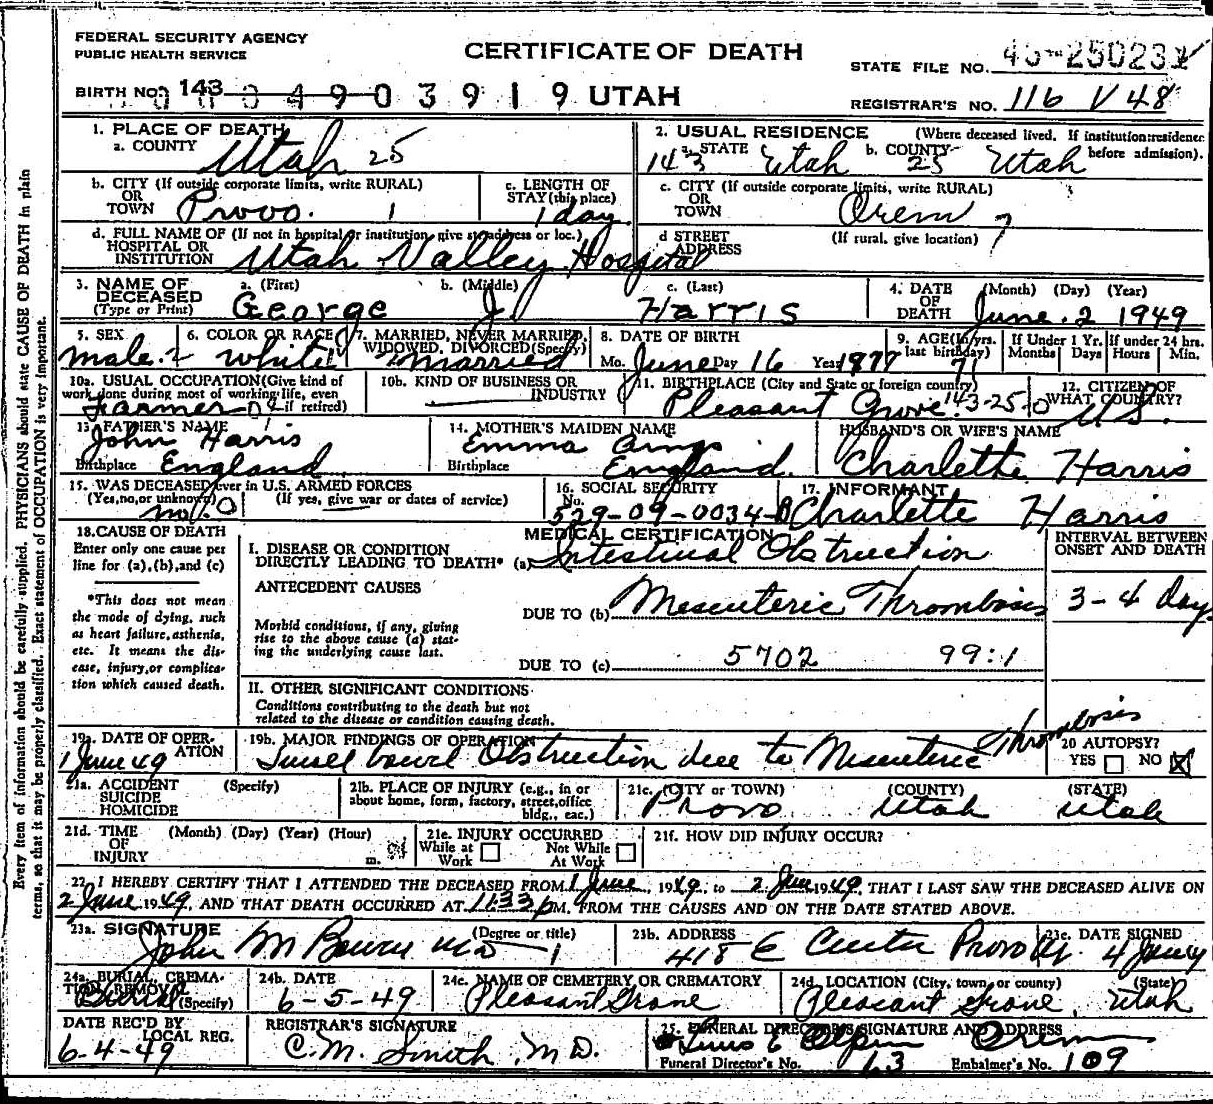 FEDERAL SECURITY AGENCY
PUBLIC HEALTH SERVICE
CERTIFICATE OF DEATH
STATE FILE NO.
BIRTH NO. 143
0 0 0 4 9 0 3 9 1 9 UTAH
REGISTRAR'S NO. 116 V 48
1. PLACE OF DEATH
a. COUNTY Utah 25
2. USUAL RESIDENCE (Where deceased lived. If institution:residence before admission).
143 a. STATE Utah b. COUNTY 25 Utah
b. CITY (If outside corporate limits, write RURAL)
OR
TOWN Provo. 1
c. LENGTH OF
STAY (this place)
1 day.
c. CITY (If outside corporate limits, write RURAL)
OR
TOWN Orem 7
d. FULL NAME OF (If not in hospital or institution, give st. address or loc.)
HOSPITAL OR
INSTITUTION Utah Valley Hospital
d STREET (If rural, give location)
ADDRESS
3. NAME OF
DECEASED
(Type or Print)
a. (First) b. (Middle) c. (Last)
George J. Harris
4. DATE (Month) (Day) (Year)
OF
DEATH June. 2 1949
5. SEX
male.
6. COLOR OR RACE
white
7. MARRIED, NEVER MARRIED,
WIDOWED, DIVORCED (Specify)
married
8. DATE OF BIRTH
Mo. June Day 16 Year 1877
9. AGE (In yrs.
last birthday)
71
If Under 1 Yr.
Months Days
If under 24 hrs.
Hours Min.
10a. USUAL OCCUPATION (Give kind of
work done during most of working life, even
if retired)
Farmer
10b. KIND OF BUSINESS OR
INDUSTRY
11. BIRTHPLACE (City and State or foreign country)
Pleasant Grove. 143-25-0
12. CITIZEN OF
WHAT COUNTRY?
U.S.
13. FATHER'S NAME
John Harris
Birthplace England
14. MOTHER'S MAIDEN NAME
Emma
Birthplace England.
HUSBAND'S OR WIFE'S NAME
Charlette Harris
15. WAS DECEASED ever in U.S. ARMED FORCES
(Yes,no,or unknown) (If yes, give war or dates of service)
no. 0
16. SOCIAL SECURITY
No.
529-09-0034
17. INFORMANT
Charlette Harris
18. CAUSE OF DEATH
Enter only one cause per
line for (a),(b),and (c)
*This does not mean
the mode of dying, such
as heart failure, asthenia,
etc. It means the dis-
ease, injury,or complica-
tion which caused death.
MEDICAL CERTIFICATION
INTERVAL BETWEEN
ONSET AND DEATH
I. DISEASE OR CONDITION
DIRECTLY LEADING TO DEATH* (a) Intestinal Obstruction
ANTECEDENT CAUSES
Morbid conditions, if any, giving
rise to the above cause (a) stat-
ing the underlying cause last.
DUE TO (b) Mesenteric Thrombosis 3-4 days
DUE TO (c) 5702 99:1
II. OTHER SIGNIFICANT CONDITIONS
Conditions contributing to the death but not
related to the disease or condition causing death.
19a. DATE OF OPER-
ATION
1 June 49
19b. MAJOR FINDINGS OF OPERATION
Small bowel Obstruction due to Mesenteric Thrombosis
20 AUTOPSY?
YES NO X
21a. ACCIDENT (Specify)
SUICIDE
HOMICIDE
21b. PLACE OF INJURY (e.g., in or
about home, form, factory, street,office
bldg., eac.)
21c. (CITY or TOWN) (COUNTY) (STATE)
Provo, Utah Utah
21d. TIME (Month) (Day) (Year) (Hour)
OF
INJURY m.
21e. INJURY OCCURRED
While at Not While
Work At Work
21f. HOW DID INJURY OCCUR?
22. I HEREBY CERTIFY THAT I ATTENDED THE DECEASED FROM 1 June, 1949, to 2 June 1949, THAT I LAST SAW THE DECEASED ALIVE ON
2 June 1949, AND THAT DEATH OCCURRED AT 11:33 p M. FROM THE CAUSES AND ON THE DATE STATED ABOVE.
23a. SIGNATURE (Degree or title)
John M Bowen MD 1
23b. ADDRESS
418 E Center Provo Ut.
23c. DATE SIGNED
4 June 49
24a. BURIAL, CREMA-
TION, REMOVAL
(Specify)
Burial
24b. DATE
6-5-49
24c. NAME OF CEMETERY OR CREMATORY
Pleasant Grove
24d. LOCATION (City, town, or county) (State)
Pleasant Grove, Utah
DATE REC'D BY
LOCAL REG.
6-4-49
REGISTRAR'S SIGNATURE
C. M. Smith, M D.
25. FUNERAL DIRECTOR'S SIGNATURE AND ADDRESS
Orem
Funeral Director's No. 63 Embalmer's No. 109
Every item of information should be carefully supplied. PHYSICIANS should state CAUSE OF DEATH in plain
terms, so that it may be properly classified. Exact statement of OCCUPATION is very important.